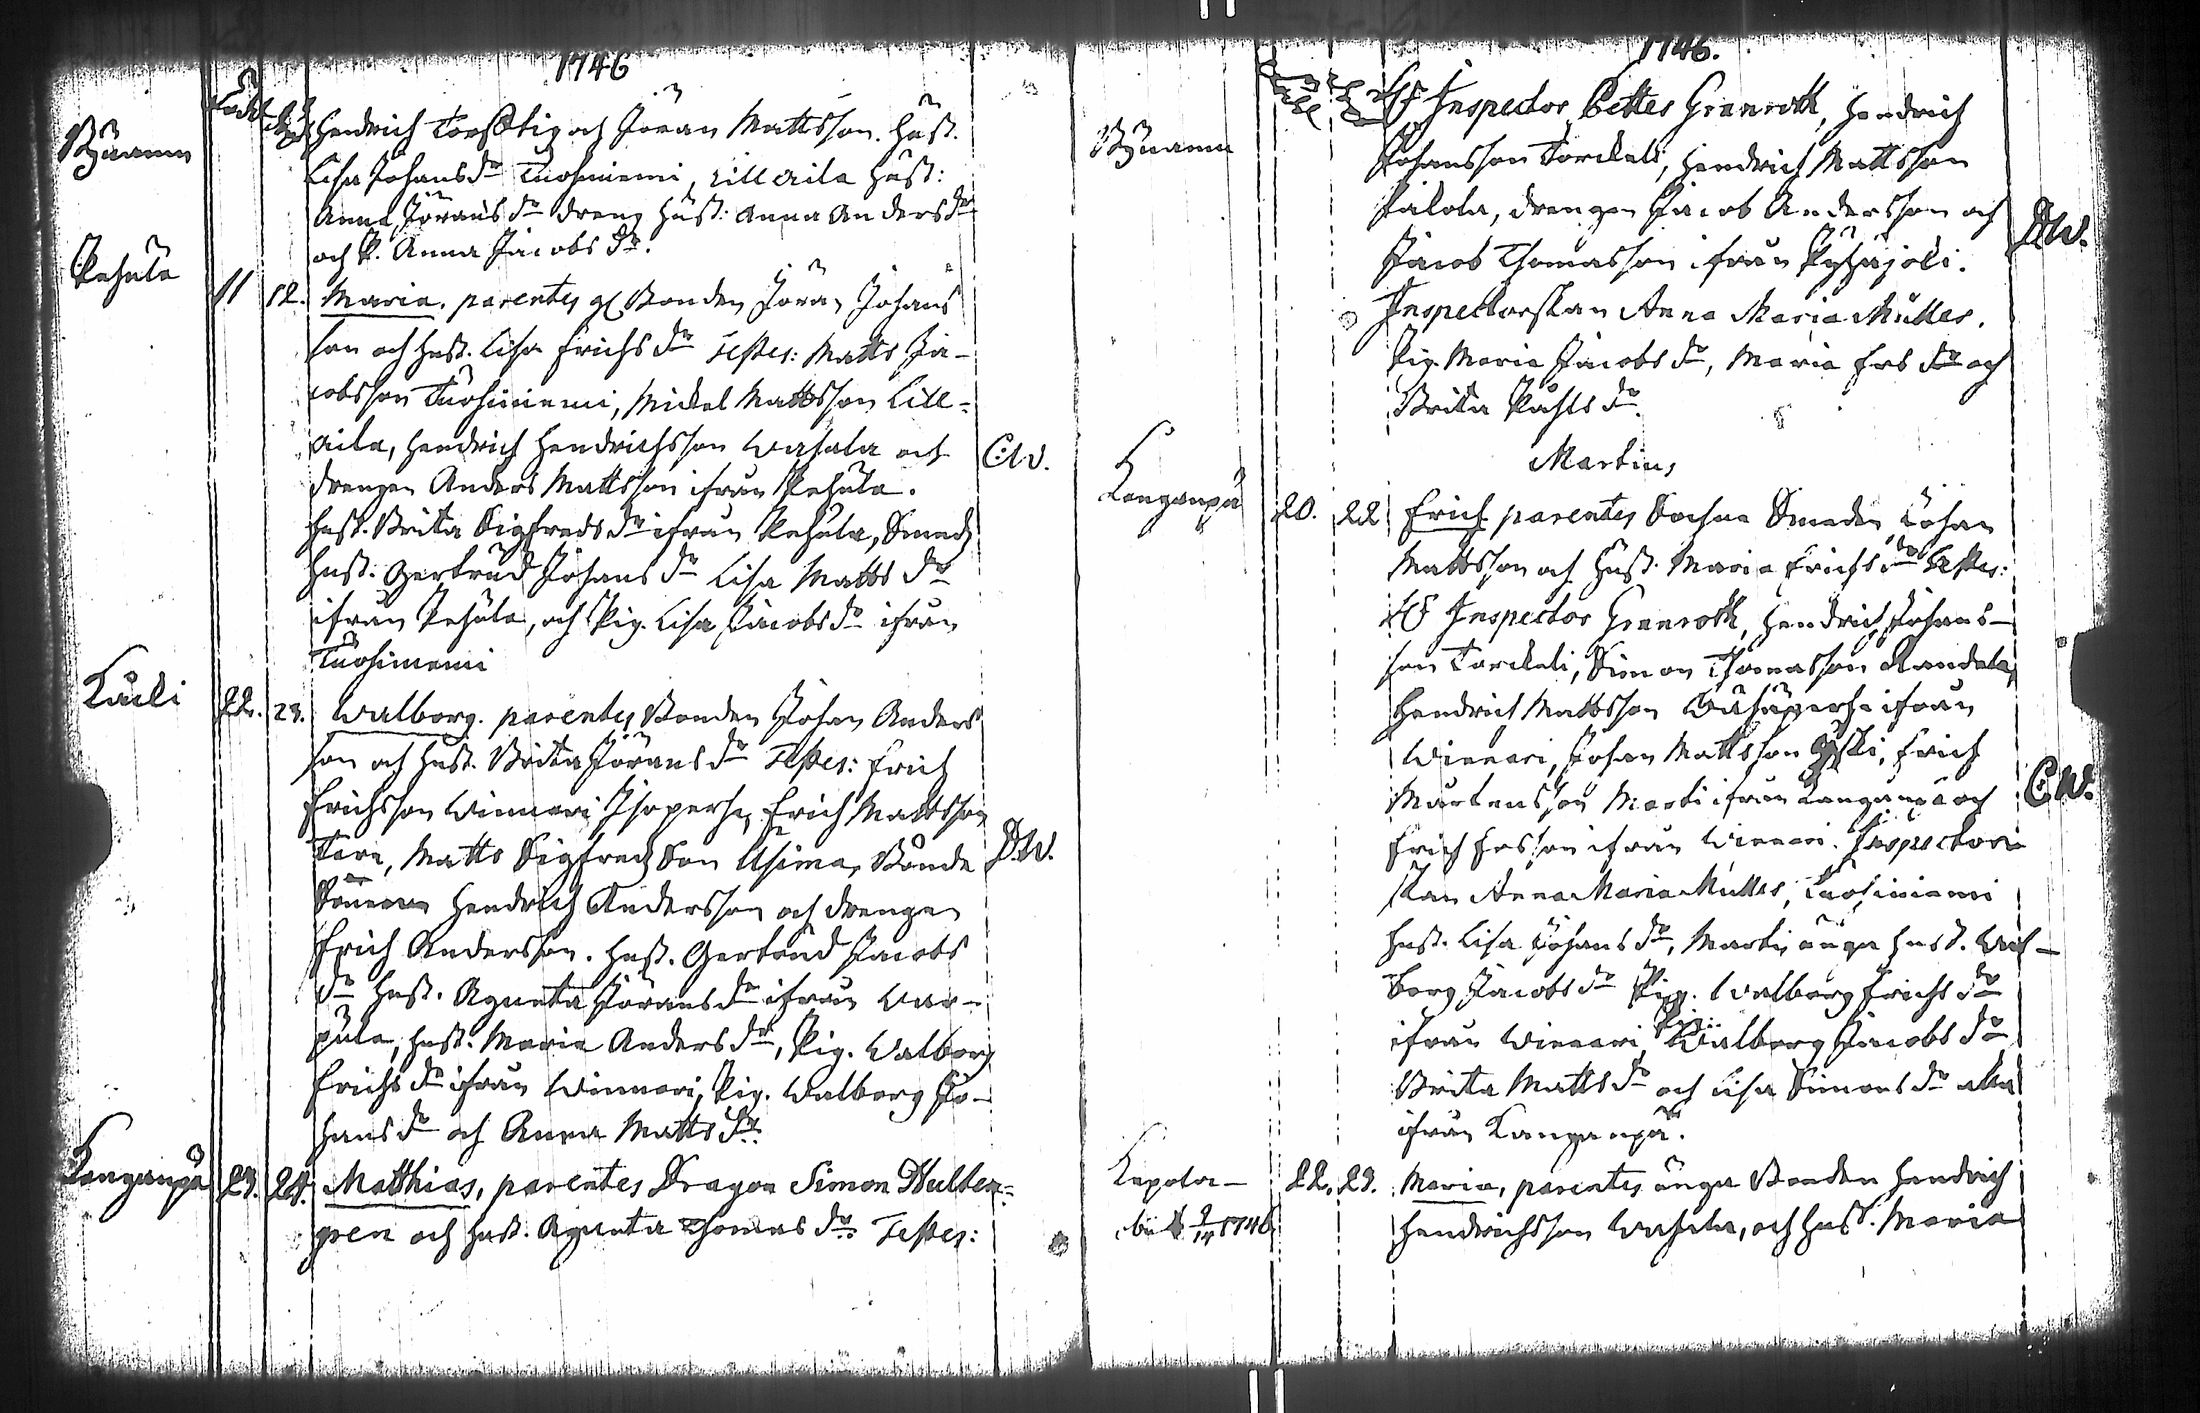 1746
Hendrich Torstig och Jöran Mattsson. Hust.
Lisa Johans dr Tuohiniemi, Lill Aila Hust:
Anna Jörans dr Dreng Hust: Anna Anders dr
och P. Anna Jacobs dr.
Pehula 11 12. Maria. parentes Bonden Jöran Johans
son och Hust. Lisa Erichs dr Testes: Matts Ja-
cobsson Tuohiniemi, Mickel Mattsson Lill-
Aila, Hendrich Hendrichsson Wahala och
Drengen Anders Mattsson ifrån Pehula.
C:W.
Hust. Brita Sigfreds dr ifrån Pehula, Smeds
Hust. Gertrud Johans dr Lisa Matts dr
ifrån Pehula, och Pig. Lisa Jacobs dr ifrån
Tuohiniemi
Kauli 22. 23. Walborg. parentes Bonden Johan Anders
son och Hust. Brita Jörans dr Testes: Erich
Erichsson Winnari Isoperhe, Erich Mattsson
Tara, Matts Sigfreds Son Usima, Bonde
D:W.
Sonen Hendrich Andersson och Drengen
Erich Andersson. Hust. Gertrud Jacobs
dr Hust. Agneta Jörans dr ifrån War-
pula, Hust. Maria Anders dr, Pig. Walborg
Erichs dr ifrån Winnari, Pig. Walborg Jo-
hans dr och Anna Matts dr.
Kanganpä 23. 24. Matthias, parentes Dragon Simon Hulten-
gren och Hust. Agneta Thomas dr. Testes:
1746.
Hr Inspector Petter Granroth, Hendrich
Johansson Torckeli, Hendrich Mattsson
Päkola, Drengen Jacob Andersson och
Jacob Thomasson ifrån Pyhäjoki.
D:W.
Inspectorskan Anna Maria Muller.
Pig. Maria Jacobs dr, Maria Ers dr och
Brita Påhls dr.
Martius
Kanganpä 20. 22 Erich parentes Sochne Smeden Johan
Mattsson och Hust. Maria Erichs dr Testes:
Hr Inspector Granroth, Hendrich Johans-
son Torckeli, Simon Thomasson Randala,
Hendrich Mattsson Wähäperhe ifrån
Winnari, Johan Mattsson Yski, Erich
Martensson Marti ifrån Kanganpä och
C:W.
Erich Ersson ifrån Winnari. Inspectori
skan Anna Maria Muller, Tuohiniemi
Hust. Lisa Johans dr, Marti unga Hust. Wal-
borg Jacobs dr Pig. Walborg Erichs dr
ifrån Winnari, Pig: Walborg Jacobs dr
Brita Matts dr och Lisa Simons dr alla
ifrån Kanganpä.
Kepola 22. 23. Maria, parentes unga Bonden Hendrich
Hendrichsson Wahala, och Hust. Maria
1746